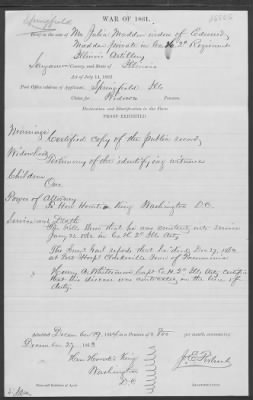 Springfield
WAR OF 1861.
Brief in the case of Mrs Julia Madden widow of Edward
Madden private in Co. H 2d Regiment
Illinois Artillery
Sangamon County, and State of Illinois
Act of July 14, 1862
Post Office address of Applicant, Springfield Ills
Claim for Widows Pension.
Declaration and Identification in Due Form.
PROOF EXHIBITED
Marriage Certified copy of the public record,
Widowhood Testimony of the identifying witness
Children One
Power of Attorney
To Horatio King Washington D.C.
Service and Death
The rolls show that he was in
Co H. 2d Ills Arty
The Surg. Genl reports that he died
at Post Hosp. Clarksville Tenn of Pneumonia
Henry Capt Co H. 2d Ills Arty
that his disease was contracted in the line of
duty.
Admitted December 29, 1864 to a Pension of $ 8.00
December 27, 1863
Hon Horatio King
Washington
D.C.